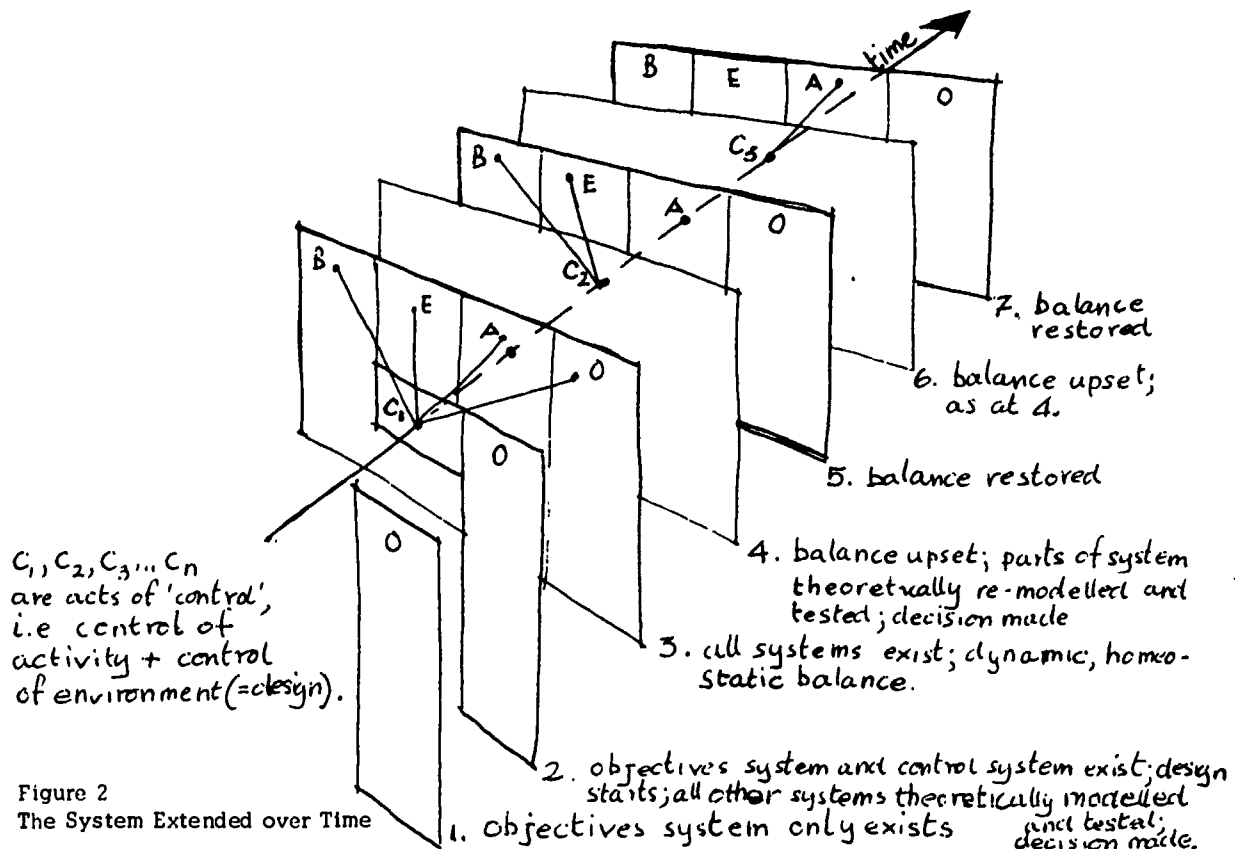 time
B E A O
C3
B E A O
C2
B E A O
C1
O
O
7. balance
restored
6. balance upset;
as at 4.
5. balance restored
4. balance upset; parts of system
theoretically re-modelled and
tested; decision made
3. all systems exist; dynamic, homeo-
static balance.
2. objectives system and control system exist; design
starts; all other systems theoretically modelled
and tested;
decision made.
1. objectives system only exists
C1, C2, C3 ... Cn
are acts of 'control',
i.e control of
activity + control
of environment (=design).
Figure 2
The System Extended over Time